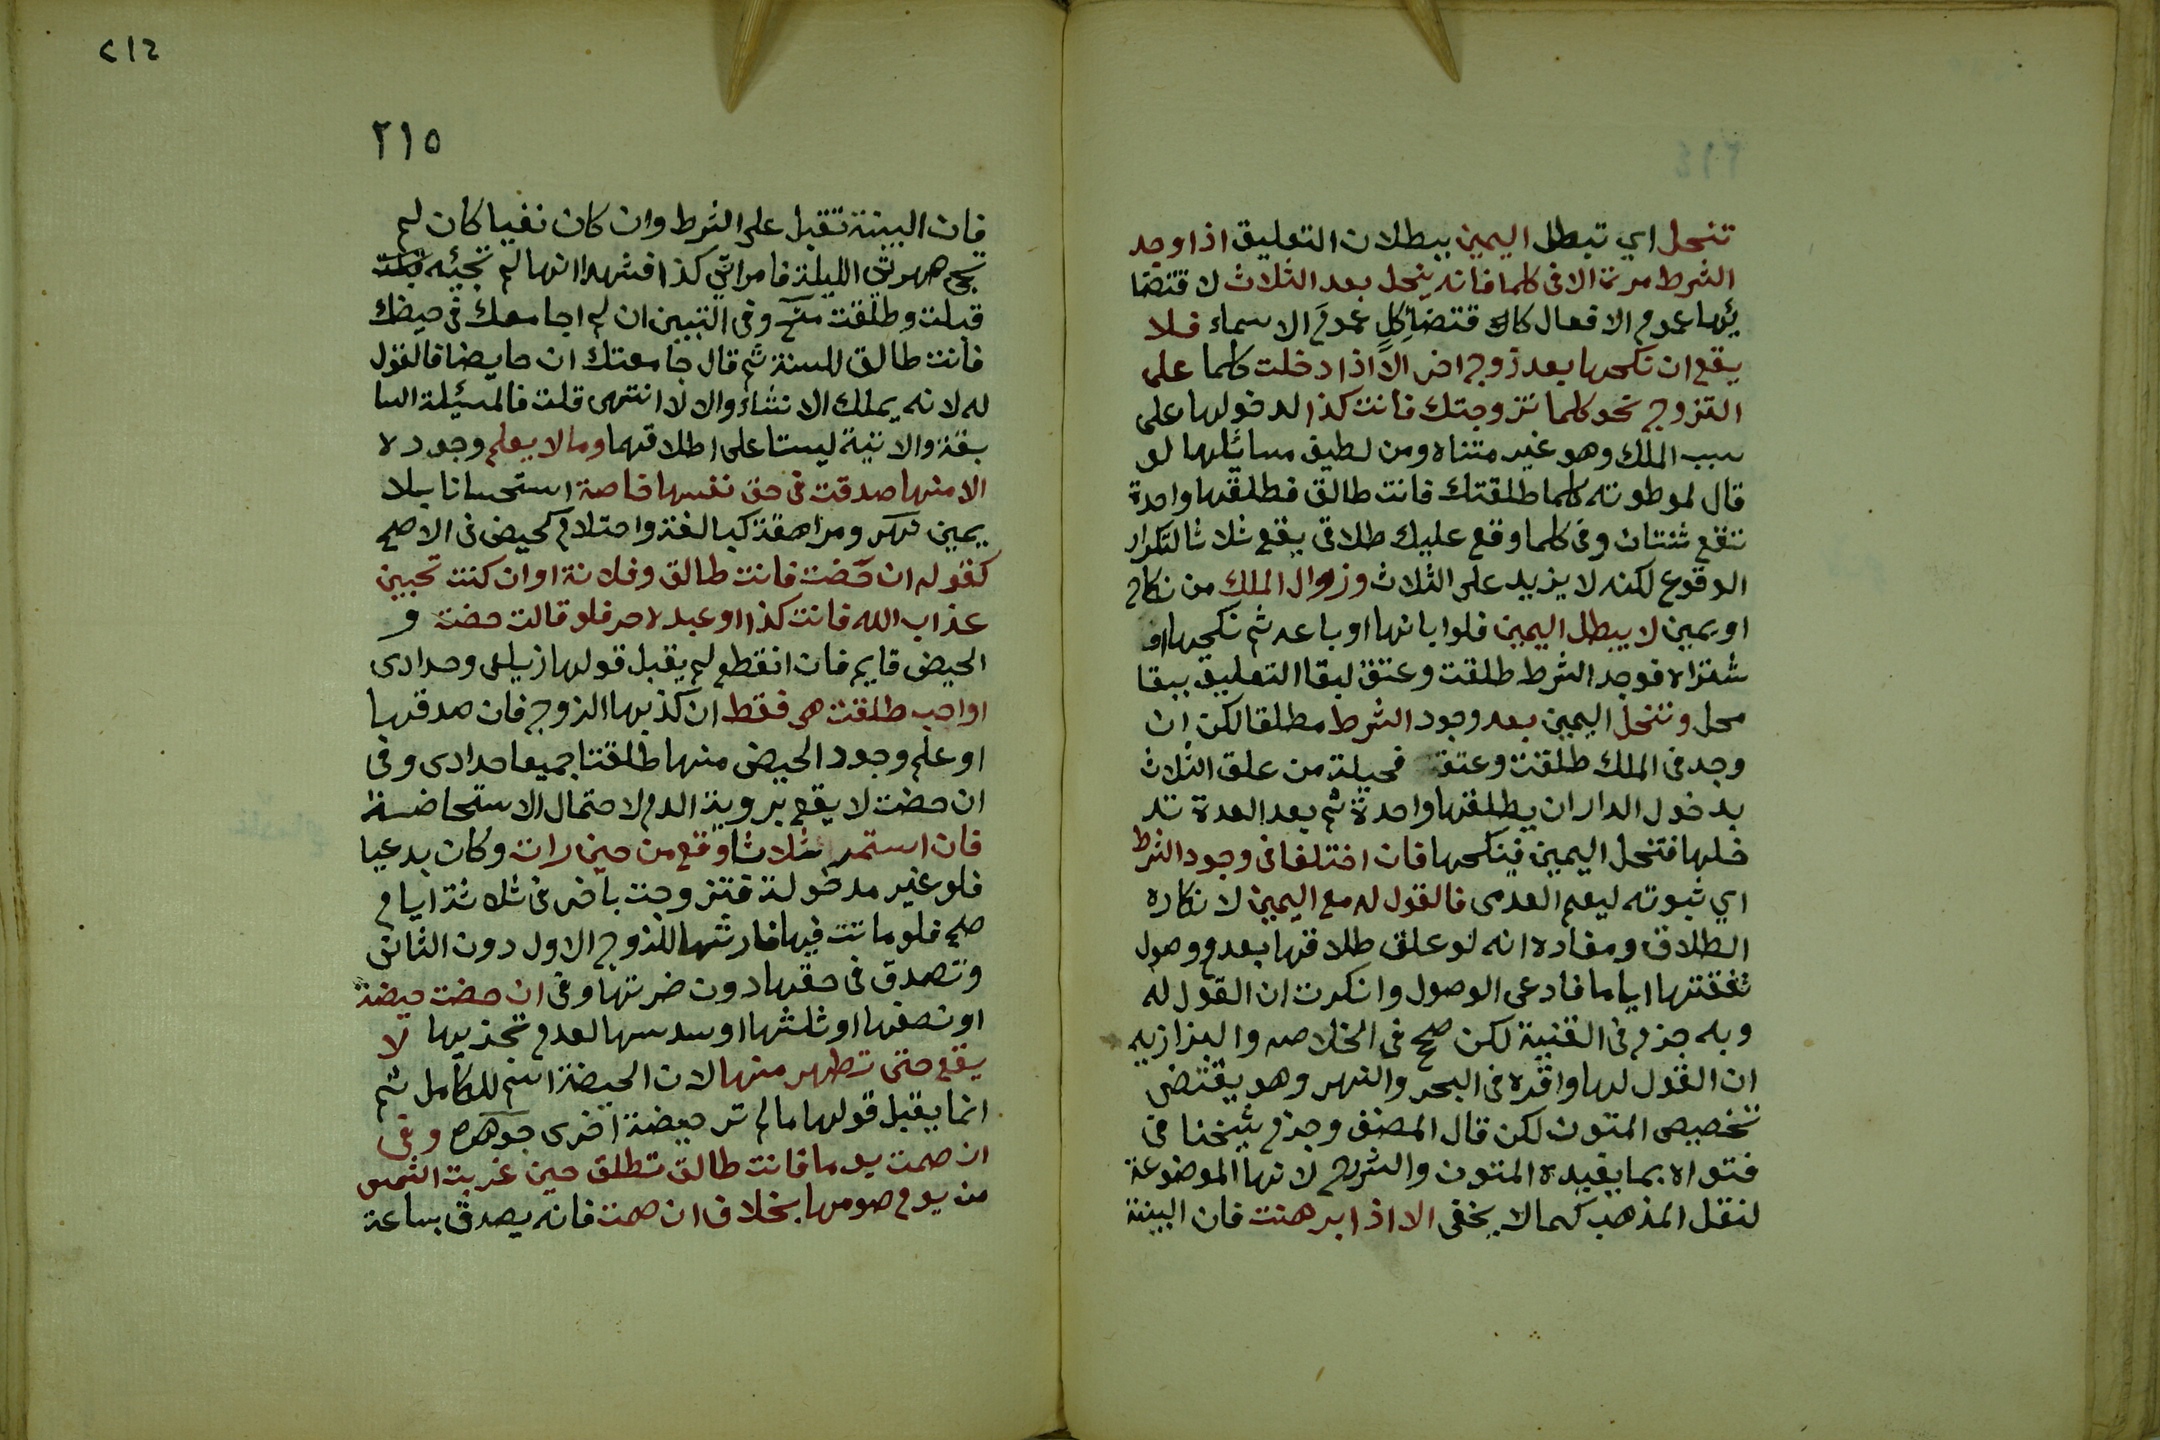 تنحل اي تبطل اليمين ببطلان التعليق اذا وجد
الشرط مرة الا فى كلما فانه ينحل بعد الثلاث لاقتضا
ئها عموم الافعال كاقتضا كل عموم الاسماء فلا
يقع ان نكحها بعد زوج اخر الا اذا دخلت كلما على
التزوج نحو كلما تزوجتك فانت كذا لدخولها على
سبب الملك وهو غير متناه ومن لطيف مسائلها لو
قال لموطوته كلما طلقتك فانت طالق فطلقها واحدة
تقع ثنتان وفى كلما وقع عليك طلاقى يقع ثلاثا لتكرار
الوقوع لكنه لا يزيد على الثلاث وزوال الملك من نكاح
او يمين لا يبطل اليمين فلو ابانها او باعه ثم نكحها او
شتراه فوجد الشرط طلقت وعتق لبقا التعليق ببقا
محل وتنحل اليمين بعد وجود الشرط مطلقا لكن ان
وجد فى الملك طلقت وعتق فحيلة من علق الثلاث
بدخول الدار ان يطلقها واحدة ثم بعد العدة تد
خلها فتنحل اليمين فينكحها فان اختلفا فى وجود الشرط
اي ثبوته ليعم العدمى فالقول له مع اليمين لانكاره
الطلاق ومفاده انه لو علق طلاقها بعدم وصول
نفقتها اياما فادعى الوصول وانكرت ان القول له
وبه جزم فى القنية لكن صحح فى الخلاصه والبزازيه
ان القول لها واقره فى البحر والنهر وهو يقتضى
تخصيص المتون لكن قال المصنف وجزم شيخنا فى
فتواه بما يفيده المتون والشروح لانها الموضوعة
لنقل المذهب كما لا يخفى الا اذا برهنت فان البينة
٢١٤
٢١٥
فان البينة تقبل على الشرط وان كان نفيا كان لم
تجى صهرتى الليلة فامراتى كذا فشهدا انها لم تجئه
قبلت وطلقت منح وفى التبيين ان لم اجامعك فى حيضك
فانت طالق للسنة ثم قال جامعتك ان حايضا فالقول
له لانه يملك الانشاء والا لا انتهى قلت فالمسئلة السا
بقة والاتية ليستا على اطلاقهما وما لا يعلم وجوده
الا منها صدقت فى حق نفسها خاصة استحسانا بلا
يمين نهر ومراهقة كبالغة واحتلام كحيض فى الاصح
كقوله ان حضت فانت طالق وفلانة او ان كنت تحبين
عذاب الله فانت كذا او عبده حر فلو قالت حضت و
الحيض قايم فان انقطع لم يقبل قولها زيلعى وحدادى
او احب طلقت هى فقط ان كذبها الزوج فان صدقها
او علم وجود الحيض منها طلقتا جميعا حدادى وفى
ان حضت لا يقع بروية الدم لاحتمال الاستحاضة
فان استمر ثلاثا وقع من حين رات وكان بدعيا
فلو غير مدخولة فتزوجت باخر فى ثلاثة ايام
صح فلو ماتت فيها فارثها للزوج الاول دون الثانى
وتصدق فى حقها دون ضرتها وفى ان حضت حيضة
او نصفها او ثلثها او سدسها لعدم تجذيها لا
يقع حتى تطهر منها لان الحيضة اسم للكامل ثم
انما يقبل قولها ما لم تر حيضة اخرى جوهره وفى
ان صمت يوما فانت طالق تطلق حين غربت الشمس
من يوم صومها بخلاف ان صمت فانه يصدق بساعة